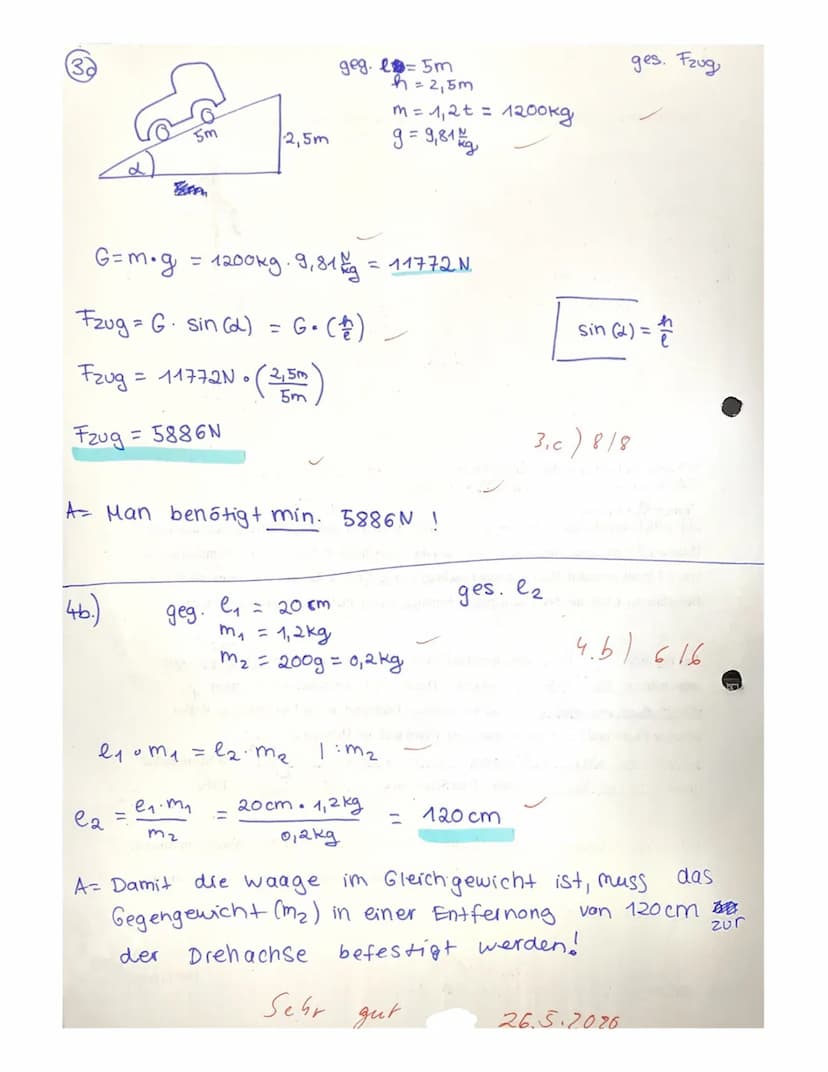 3c
geg. l = 5m
ges. Fzug
h = 2,5m
m = 1,2t = 1200kg
g = 9,81 N/kg
5m
2,5m
α
G = m · g = 1200kg · 9,81 N/kg = 11772 N
Fzug = G · sin(α) = G · (h/l)
sin(α) = h/l
Fzug = 11772N · (2,5m/5m)
Fzug = 5886N
3,c) 8/8
A= Man benötigt min. 5886N !
4b.)
geg. l₁ = 20cm
ges. l₂
m₁ = 1,2kg
m₂ = 200g = 0,2kg
4.b) 6/6
l₁ · m₁ = l₂ · m₂ | :m₂
l₂ = l₁·m₁/m₂ = 20cm · 1,2kg/0,2kg = 120cm
A= Damit die Waage im Gleichgewicht ist, muss das
Gegengewicht (m₂) in einer Entfernong von 120cm zur
der Drehachse befestigt werden!
Sehr gut 26.5.2026